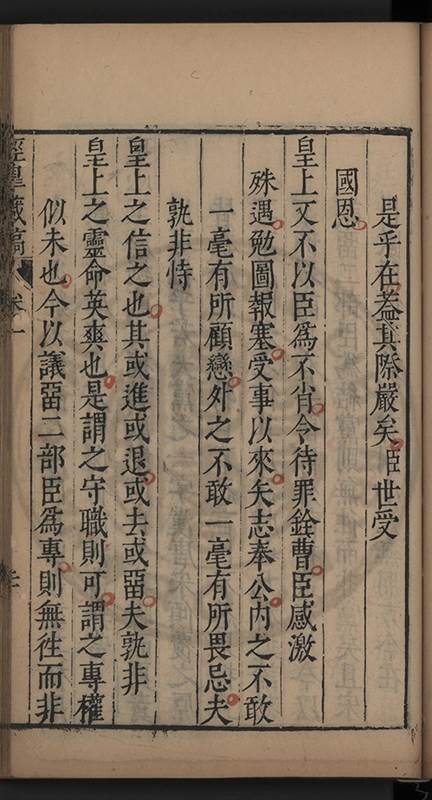 是乎在蓋其際嚴矣臣世受
國恩
皇上又不以臣為不肖令待罪銓曹臣感激
殊遇勉圖報塞受事以來矢志奉公內之不敢
一毫有所顧戀外之不敢一毫有所畏忌夫
孰非恃
皇上之信之也其或進或退或去或留夫孰非
皇上之靈命英爽也是謂之守職則可謂之專權
似未也今以議留二部臣為專則無徃而非
卷一